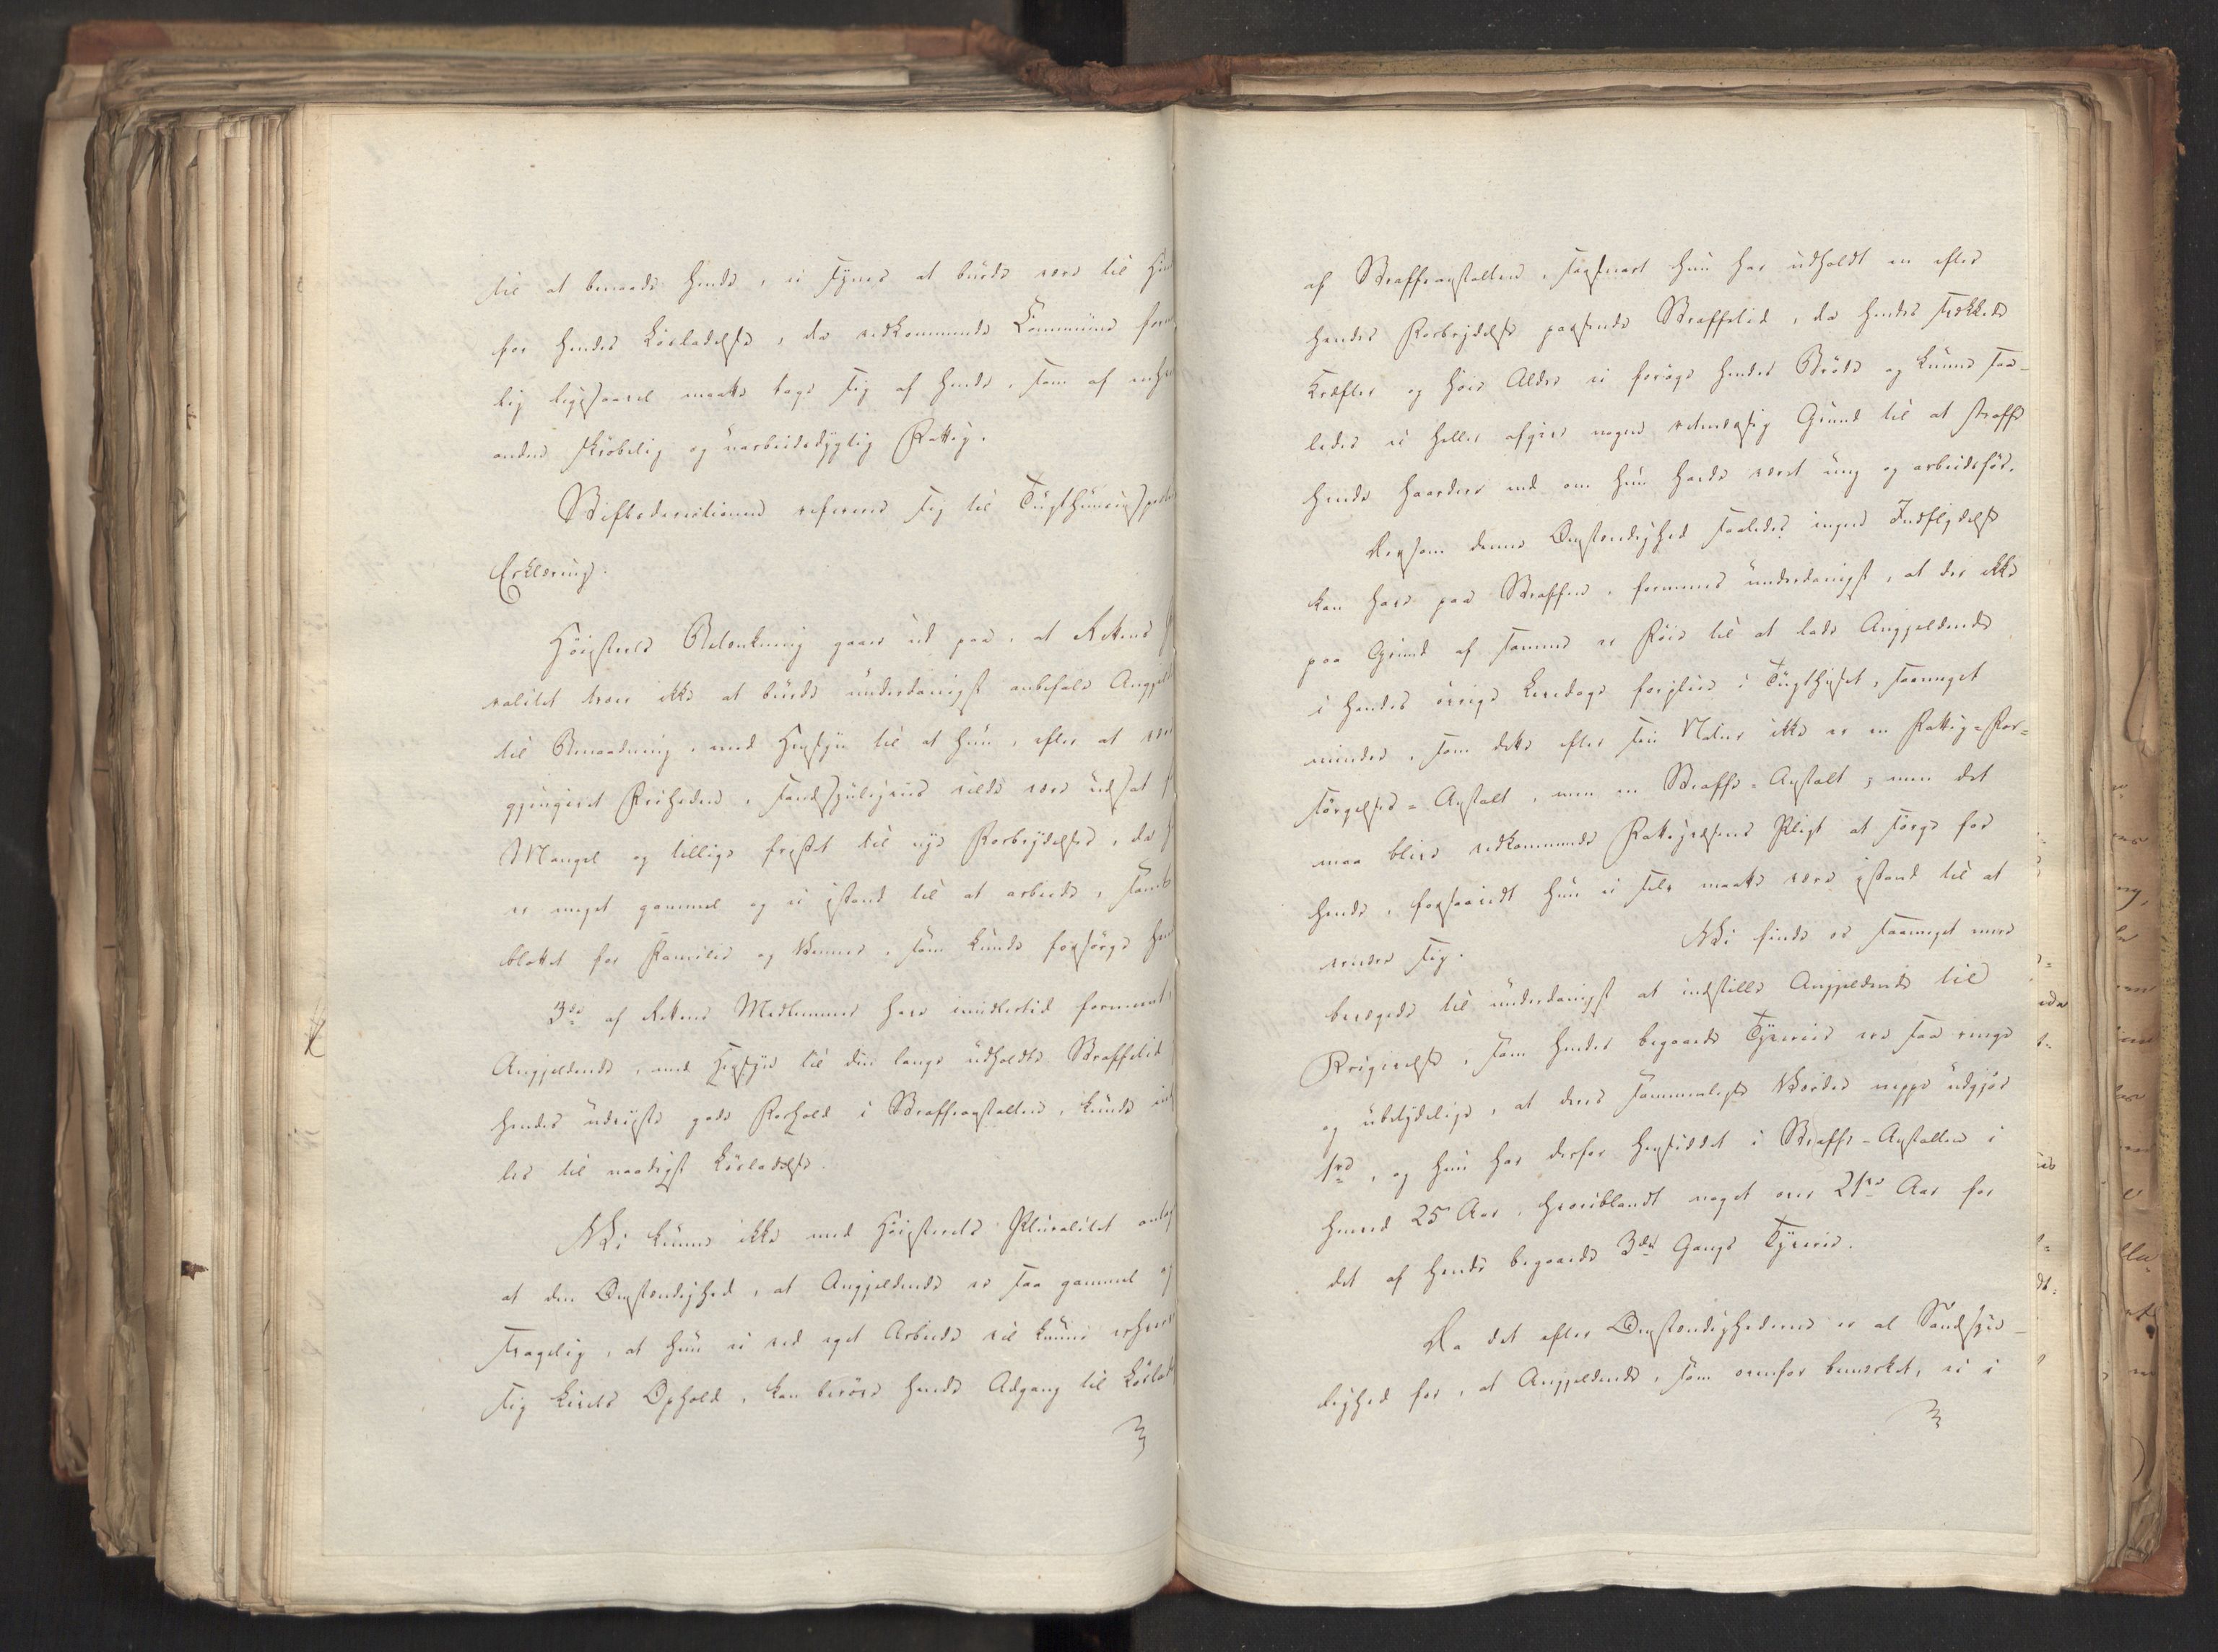 til at benaade hende, ei synes at burde være til Hin
for hendes Løsladelse, da vedkommende Commune form
lig ligesaavel maatte tage sig af hende, som af enhve
anden skrøbelig og uarbeidsdygtig Fattig.
Stiftsdirectionen refererer sig til Tugthuusinspect
Erklæring.
Høiesterets Betænkning gaaer ud paa, at Rettens
ralitet troer ikke at burde underdanigst anbefale Angjeld
til Benaadning, med Hensyn til at hun, efter at
gjengivet Friheden, sandsynligviis vilde være udsat
Mangel og tillige fristet til nye Forbrydelser, da
er meget gammel og ei istand til at arbeide, samt
blottet for Familie og Venner, som kunde forsørge hen
3de af Rettens Medlemmer have imidlertid formeent
Angjeldende, med Hensyn til den lange udholdte Straffetid
hendes udviiste gode Forhold i Straffeanstalten, kunde ind
les til naadigst Løsladelse.
Vi kunne ikke med Høiesterets Pluralitet antag
at den Omstændighed, at Angjeldende er saa gammel og
svagelig, at hun ei ved eget Arbeide vil kunne erhverve
sig Livets Ophold, kan berøve hende Adgang til Løslad
af Straffeanstalten, saasnart hun har udholdt en efter
hendes Forbrydelse passende Straffetid, da hendes svækkede
Kræfter og høie Alder ei forøge hendes Brøde og kunne saa-
ledes ei heller afgive nogen retmæssig Grund til at straffe
hende haardere end om hun havde været ung og arbeidsfør.
Ligesom denne Omstændighed saaledes ingen Indflydelse
kan have paa Straffen, formenes underdanigst, at der ikke
paa Grund af samme er Føie til at lade Angjeldende
i hendes øvrige Levedage forblive i Tugthuset, saameget
mindre, som dette efter sin Natur ikke er en Fattig=For=
sørgelses=Anstalt, men en Straffe=Anstalt; men det
maa blive vedkommende Fattigvæsens Pligt at sørge for
hende, forsaavidt hun ei selv maatte være istand til at
ernære sig.
Vi finde os saameget mere
bevægede til underdanigst at indstille Angjeldende til
Frigivelse, som hendes begaaede Tyverier ere saa ringe
og ubetydelige, at deres sammenlagte Værdie neppe udgjør
og hun har derfor hensiddet i Straffe-Anstalten i
henved 25 Aar, hvoriblandt noget over 21 Aar for
det af hende begaaede 3die Gangs Tyverie.
Da det efter Omstændighederne er al Sandsyn-
lighed for, at Angjeldende, som ovenfor bemærket, ei i